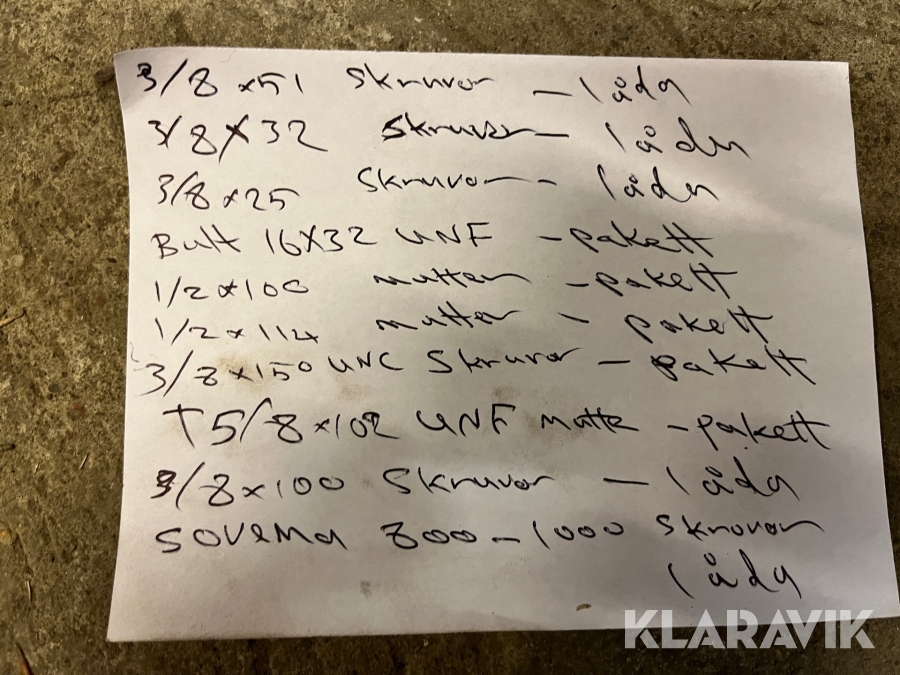 3/8 x 51 Skruvar - låda
3/8 x 32 Skruvar - låda
3/8 x 25 Skruvar - låda
Bult 16x32 UNF - pakett
1/2 x 100 mutter - pakett
1/2 x 114 mutter - pakett
3/8 x 150 UNC Skruvar - pakett
T 5/8 x 102 UNF mutte - pakett
3/8 x 100 Skruvar - låda
SOVEMA 800 - 1000 Skruvar
låda
KLARAVIK